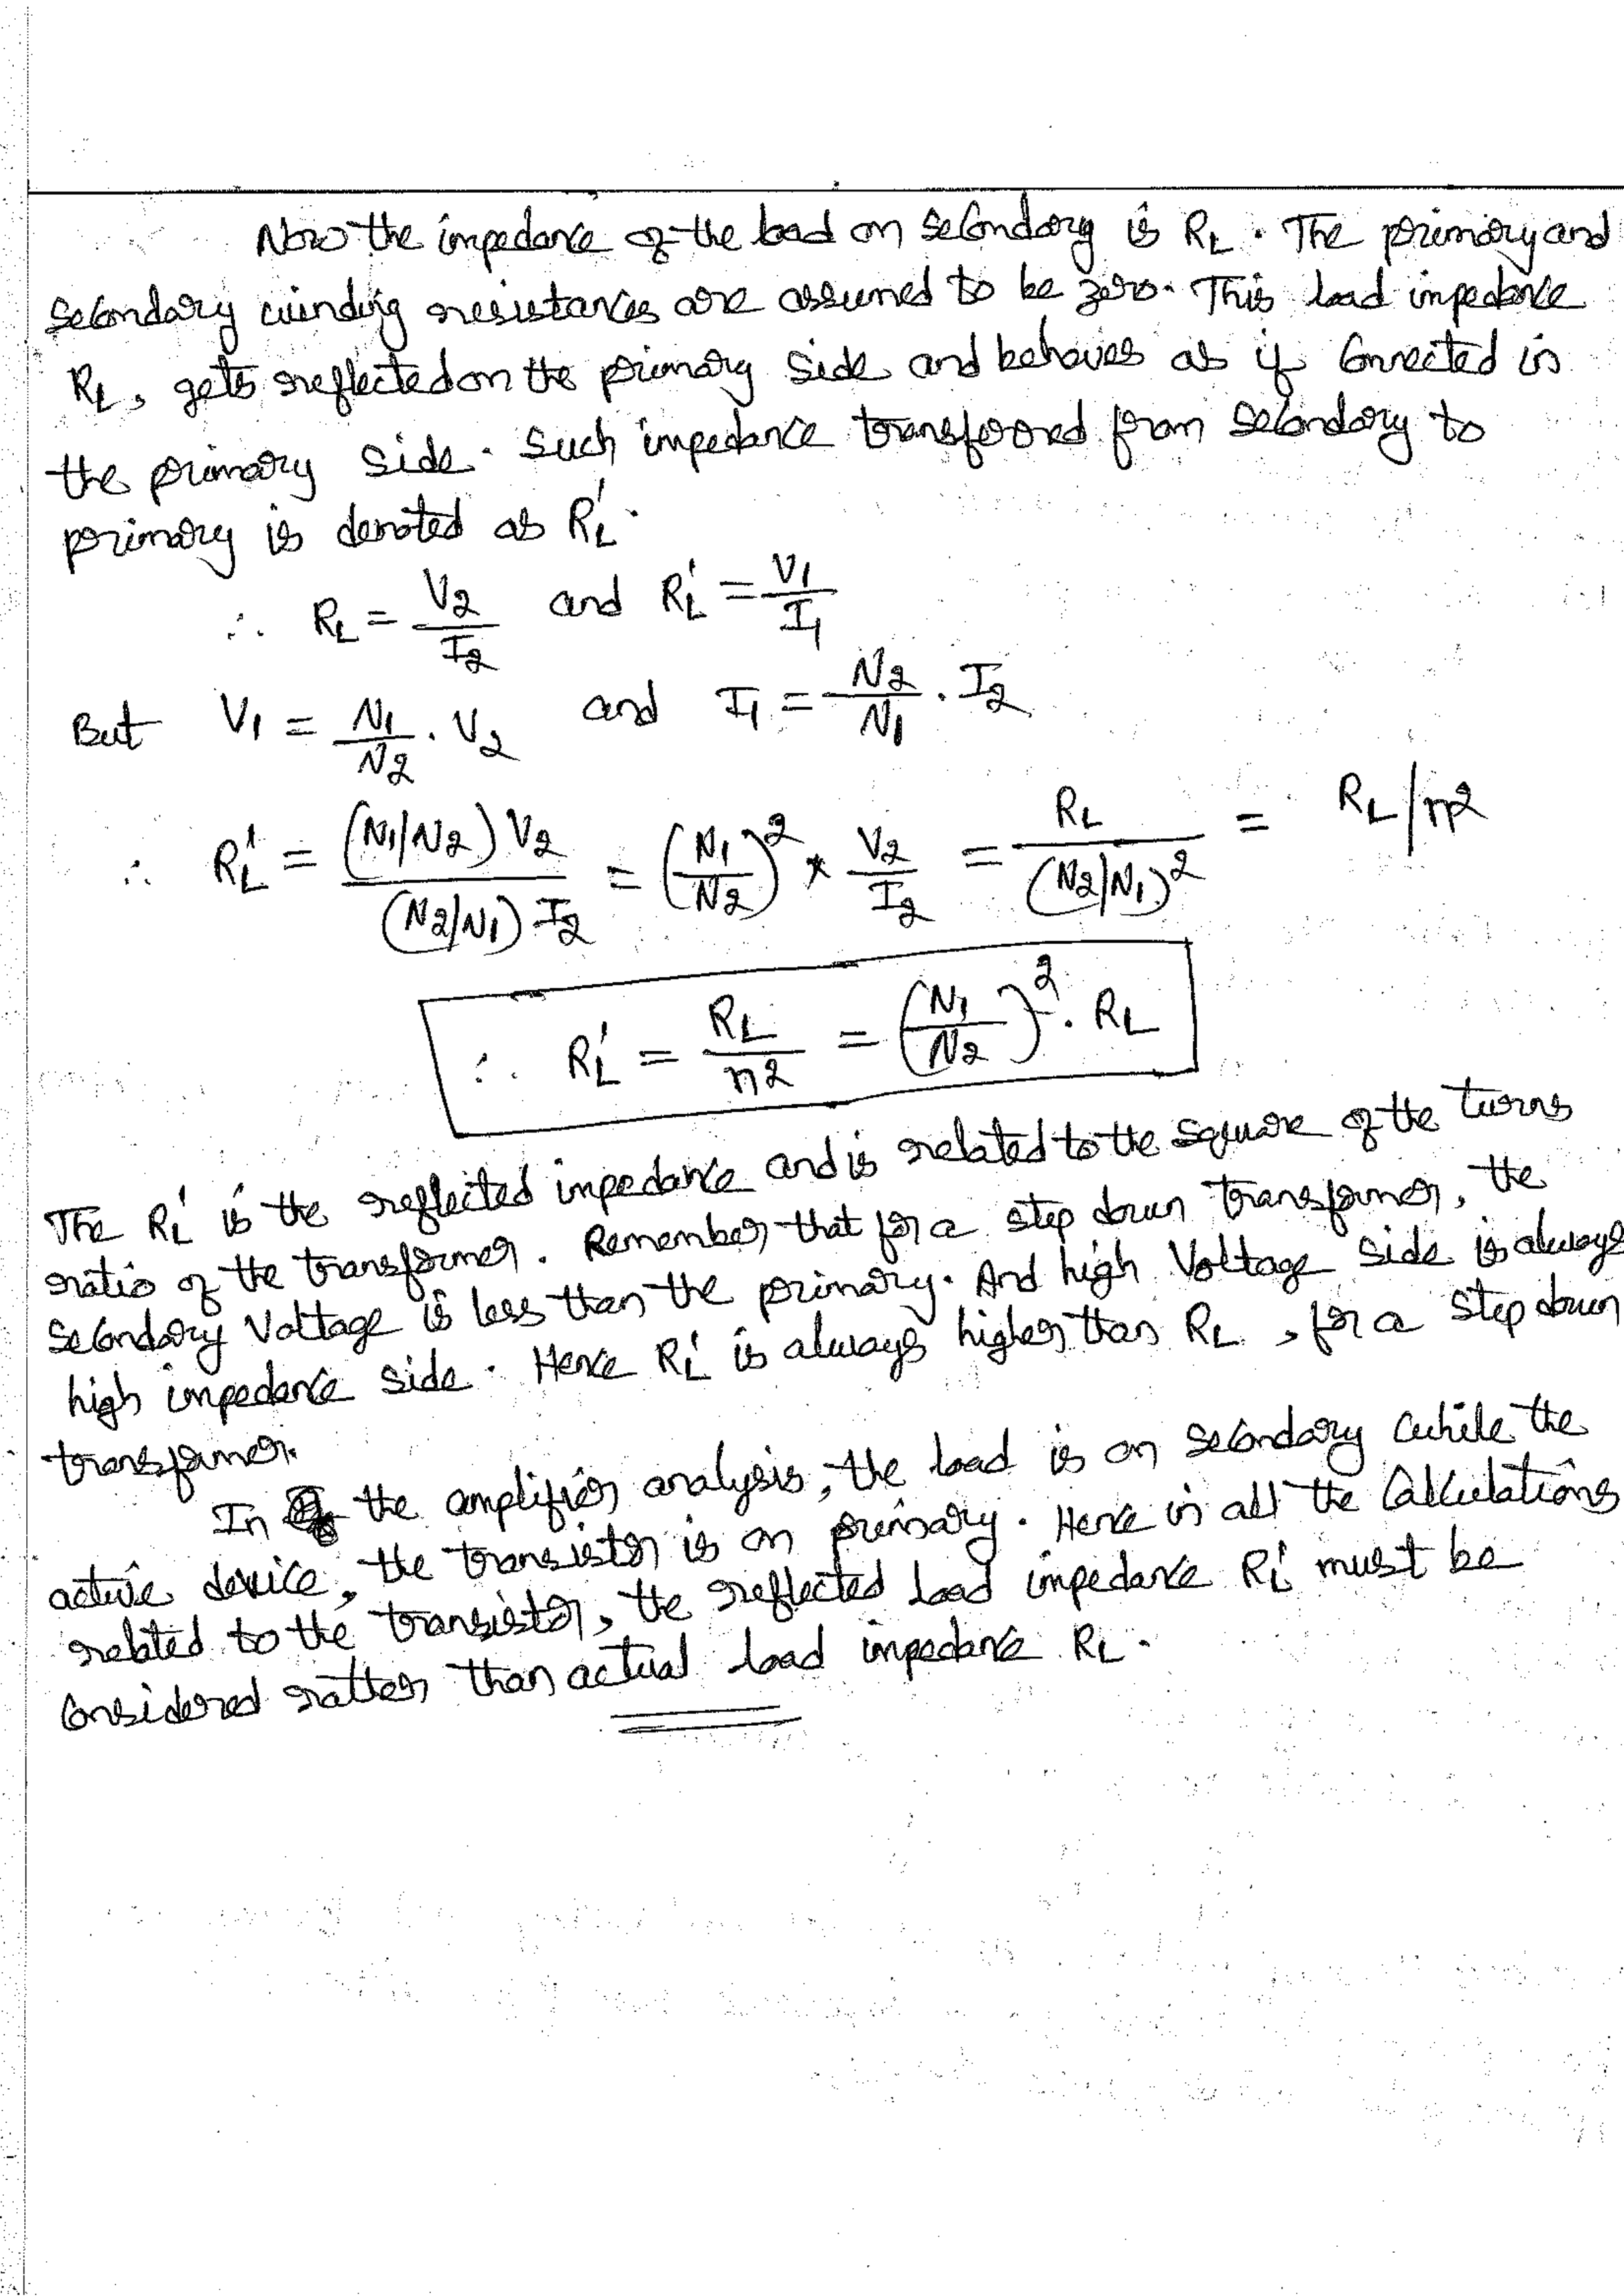 Now the impedance of the load on secondary is RL. The primary and
secondary winding resistances are assumed to be zero. This load impedance
RL, gets reflected on the primary side and behaves as if connected in
the primary side. Such impedance transferred from secondary to
primary is denoted as RL'.
∴ RL = V2/I2 and RL' = V1/I1
But V1 = N1/N2 . V2 and I1 = N2/N1 . I2
∴ RL' = (N1/N2) V2 / (N2/N1) I2 = (N1/N2)² * V2/I2 = RL/(N2/N1)² = RL/n²
∴ RL' = RL/n² = (N1/N2)² . RL
The RL' is the reflected impedance and is related to the square of the turns
ratio of the transformer. Remember that for a step down transformer, the
secondary voltage is less than the primary. And high voltage side is always
high impedance side. Hence RL' is always higher than RL, for a step down
transformer.
In the amplifier analysis, the load is on secondary while the
active device, the transistor is on primary. Hence in all the calculations
related to the transistor, the reflected load impedance RL' must be
considered ratter than actual load impedance RL.